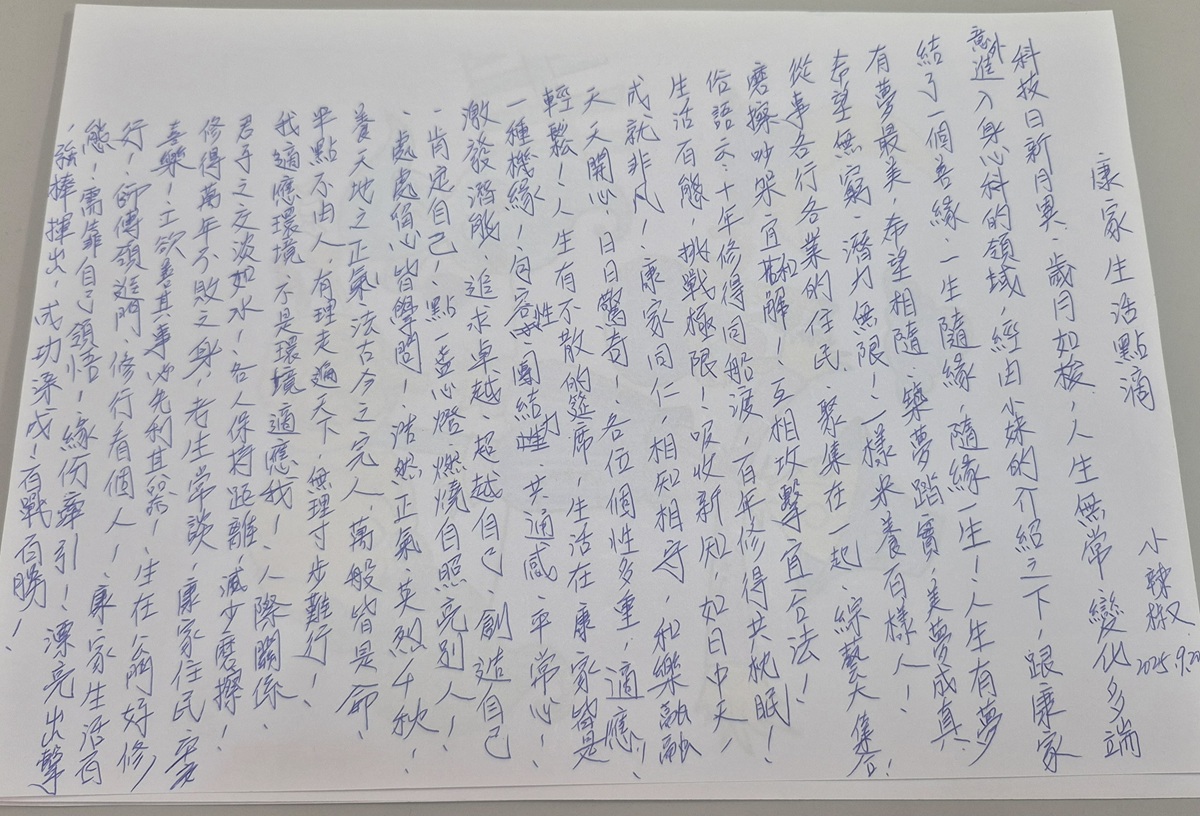 康家生活點滴
小辣椒
2025.9.20
科技日新月異、歲月如梭，人生無常變化多端
意外進入身心科的領域，經由小妹的介紹之下，跟康家
結了一個善緣、一生隨緣，隨緣一生！人生有夢
有夢最美，希望相隨、築夢踏實，美夢成真、
希望無窮、潛力無限！一樣米養百樣人！
從事各行各業的住民、聚集在一起、綜藝大集合！
磨擦吵架宜和解！互相攻擊宜合法！
俗語云：十年修得同船渡，百年修得共枕眠！
生活百態，挑戰極限！吸收新知，如日中天！
成就非凡！康家同仁，相知相守，和樂融融
天天開心，日日驚奇！各位個性多重，適應！
輕鬆！人生有不散的筵席，生活在康家皆是
一種機緣！包容性、團結力、共通感、平常心！
激發潛能、追求卓越、超越自己、創造自己
、肯定自己！點一盞心燈、燃燒自照亮別人！
、處處留心皆學問！浩然正氣、英烈千秋！
養天地之正氣法古今之完人、萬般皆是命、
半點不由人、有理走遍天下、無理寸步難行！
我適應環境、不是環境適應我！人際關係！
君子之交淡如水！各人保持距離，減少磨擦！
修得萬年不敗之身！老生常談，康家住民安
喜樂！工欲善其事必先利其器！生在公門好修
行！師傅領進門、修行看個人！康家生活百
態！需靠自己領悟！緣份牽引！漂亮出擊
，強棒揮出，成功渠成！百戰百勝！